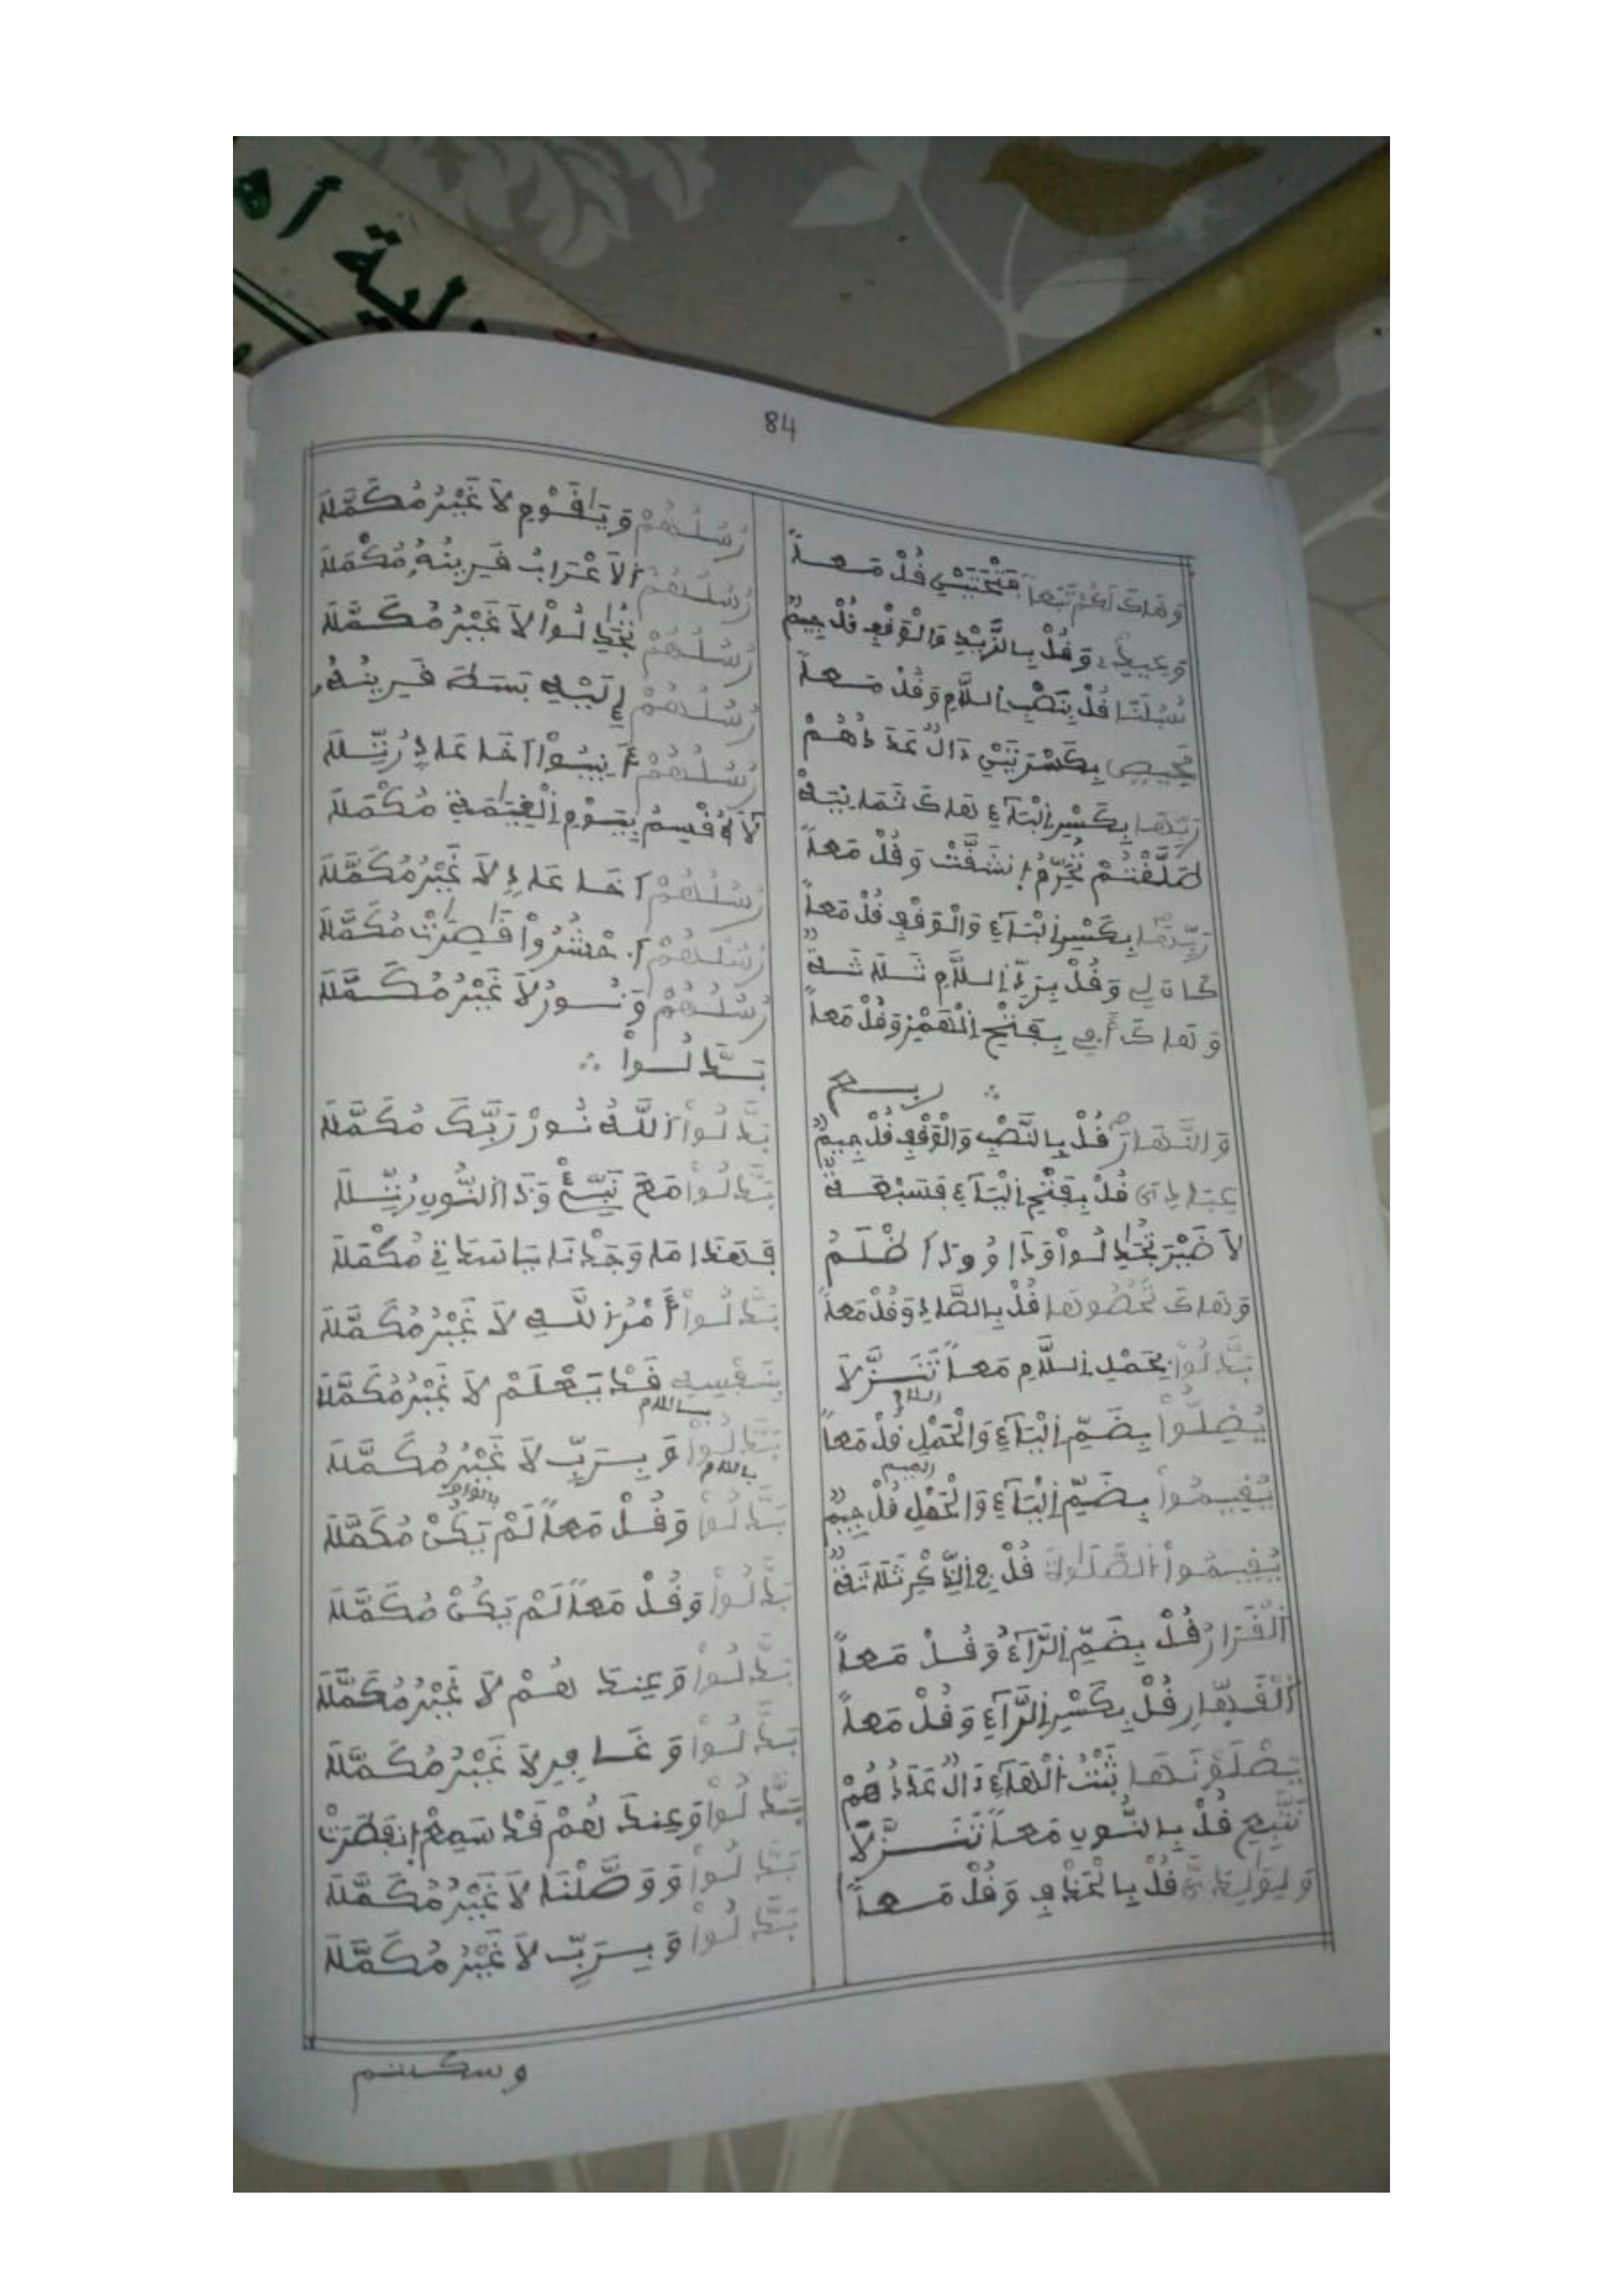 84
وَهَاكَ لَكُمْ تَبَعاً فَتْحَتَيْنِ قُلْ مَعاً
وَقُلْ بِالزَّيْدِ وَالْوَقْفِ قُلْ جِيمٌ
سُبُلَنَا قُلْ بِنَصْبِ اِللَّامِ وَقُلْ مَعاً
مَّحِيصٍ بِكَسْرَتَيْنِ دَالٌ عَدَدُهُمْ
رَبِّهَا بِكَسْرِ اِلْبَآءِ هَاكَ ثَمَانِيَهْ
طَلَّقْتُمْ تُحَرِّمُ اِنشَقَّتْ وَقُلْ مَعاً
رَبِّهَا بِكَسْرِ اِلْبَآءِ وَالْوَقْفِ قُلْ مَعاً
كَانَ لِي وَقُلْ بِزَيْدِ اِللَّامِ ثَلَاثَةٌ
وَهَاكَ أَبِي بِفَتْحِ اِلْهَمْزِ وَقُلْ مَعاً
ربع ∴
وَالنَّهَارَ قُلْ بِالنَّصْبِ وَالْوَقْفِ قُلْ جِيمٌ
عِبَادِيَ قُلْ بِفَتْحِ اِلْيَآءِ فَتِسْعَةٌ
لَا خَيْرَ تُجَادِلُواْ وَدَاوُودَ أَظْلَمُ
وَهَاكَ تُحْصُوهَا قُلْ بِالصَّادِ وَقُلْ مَعاً
بَدَّلُواْ بِحَمْلِ اِللَّامِ مَعاً تَنَزَّلَا
يُضِلُّواْ بِضَمِّ اِلْيَآءِ وَالْحَمْلِ قُلْ مَعاً
اللام
يُقِيمُواْ بِضَمِّ اِلْيَآءِ وَالْحَمْلِ قُلْ جِيمٌ
الميم
يُقِيمُواْ اُلصَّلَوٰةَ قُلْ فِي اِلذِّكْرِ ثَلَاثَةٌ
اَلْقَرَارُ قُلْ بِضَمِّ اِلرَّآءِ وَقُلْ مَعاً
اَلْقَهّارِ قُلْ بِكَسْرِ اِلرَّآءِ وَقُلْ مَعاً
يَصْلَوْنَهَا ثَبْتُ اُلْهَآءِ دَالٌ عَدَدُهُمْ
نَتَّبِعِ قُلْ بِالنُّونِ مَعاً تَنَزَّلَا
قُلْ بِالْحَذْفِ وَقُلْ مَعاً
رُسُلُهُمْ وَيَاقَوْمِ لَا غَيْرُ مُكَمَّلَهْ
رُسُلُهُمْ اَلَاعْرَابُ قَرِينُهُ مُكْمَلَهْ
رُسُلُهُمْ تُجَادِلُواْ لَا غَيْرُ مُكَمَّلَهْ
رُسُلُهُمْ إِلَيْهِ بَسَطَ قَرِينُهُ
رُسُلُهُمْ أَنِيبُواْ أَخَا عَادٍ رُتِّلَهْ
لَا أُقْسِمُ بِيَوْمِ اِلْقِيَامَةِ مُكْمَلَهْ
رُسُلُهُمْ أَخَا عَادٍ لَا غَيْرُ مُكَمَّلَهْ
رُسُلُهُمْ اُحْشُرُواْ قَاصِرَاتُ مُكَمَّلَهْ
رُسُلُهُمْ وَنُسُورُ لَا غَيْرُ مُكَمَّلَهْ
بَدَّلُواْ ∴
بَدَّلُواْ اَللَّهُ نُورُ رَبَّكَ مُكَمَّلَهْ
بَدَّلُواْ مَعَ نَبِّئْ وَذَا اَلنُّونِ رُتِّلَهْ
فَهَذَا مَا وَجَدْنَا بِيَاسَاتِي مُكْمَلَهْ
بَدَّلُواْ أَمْرُ اُللَّهِ لَا غَيْرُ مُكَمَّلَهْ
بِنَفْسِي قَدْ يَعْلَمْ لَا غَيْرُ مُكَمَّلَهْ
باللام
بَدَّلُواْ وَبِرَبِّ لَا غَيْرُ مُكَمَّلَهْ
باللام
بَدَّلُواْ وَقُلْ مَعاً لَمْ يَكُنْ مُكَمَّلَهْ
بَدَّلُواْ وَقُلْ مَعاً لَمْ يَكُنْ مُكَمَّلَهْ
بَدَّلُواْ وَعِندَهُمْ لَا غَيْرُ مُكَمَّلَهْ
بَدَّلُواْ وَغَافِرِ لَا غَيْرُ مُكَمَّلَهْ
بَدَّلُواْ وَعِندَهُمْ قَدْ سَمِعَ اِنفَطَرَتْ
بَدَّلُواْ وَوَصَّلْنَا لَا غَيْرُ مُكَمَّلَهْ
بَدَّلُواْ وَبِرَبِّ لَا غَيْرُ مُكَمَّلَهْ
وسكنتم